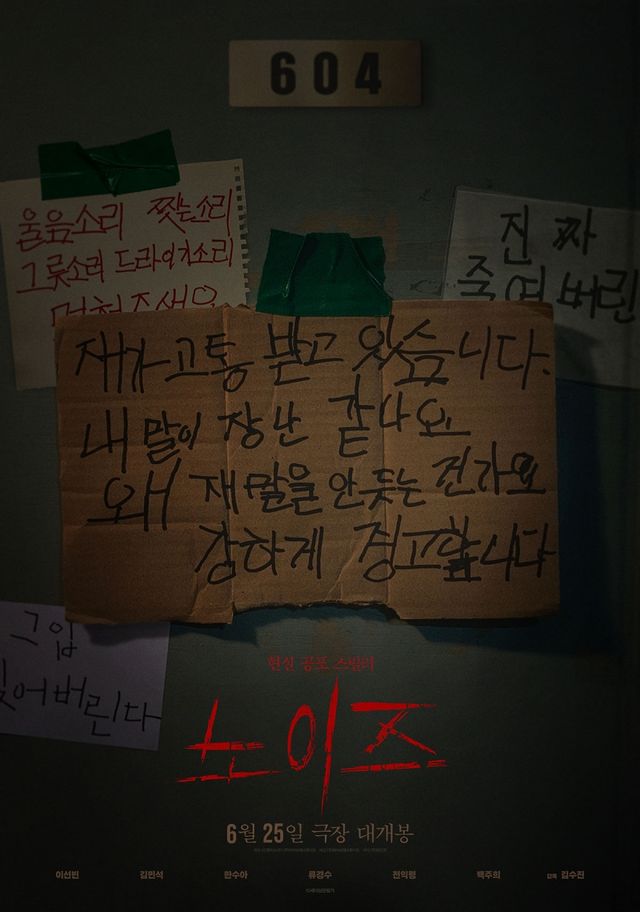 604
울음소리 짖는소리
그릇소리 드라이기소리
멈춰주세요
진짜
죽여버린
재가 고통 받고 있슴니다.
내 말이 장난 같나요
왜 재말을 안듯는 건가요
강하게 경고합니다
그입
찢어버린다
현실 공포 스릴러
노이즈
6월 25일 극장 대개봉
이선빈 김민석 한수아 류경수 전익령 백주희 감독 김수진